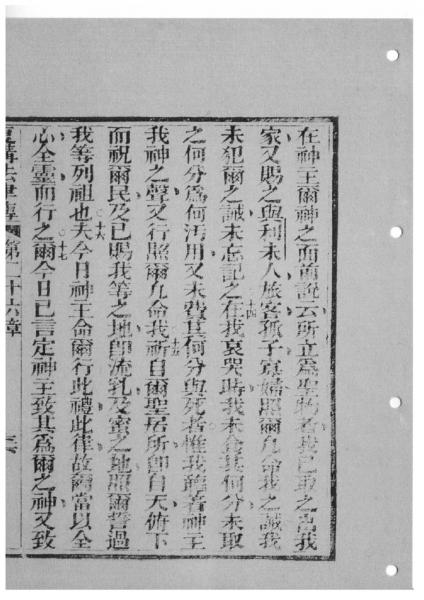 在神主爾神之面前說云所立爲聖物者我已取之出我
家又賜之與利未人旅客孤子寡婦照爾凡命我之誡我
未犯爾之誡未忘記之十四在我哀哭時我未食其何分未取
之何分爲何汚用又未費其何分與死者惟我聽着神主
我神之聲又行照爾凡命我十五祈自爾聖居所卽自天俯下
而祝爾民及已賜我等之地卽流乳及蜜之地照爾誓過
我等列祖也十六夫今日神主命爾行此禮此律故爾當以全
心全靈而行之十七爾今日已言定神主致其爲爾之神又致
傳 第二十六章